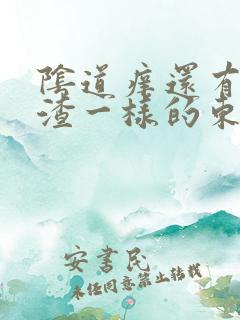 陰道痒還有
渣一様的東
安書民
未经同意禁止转载